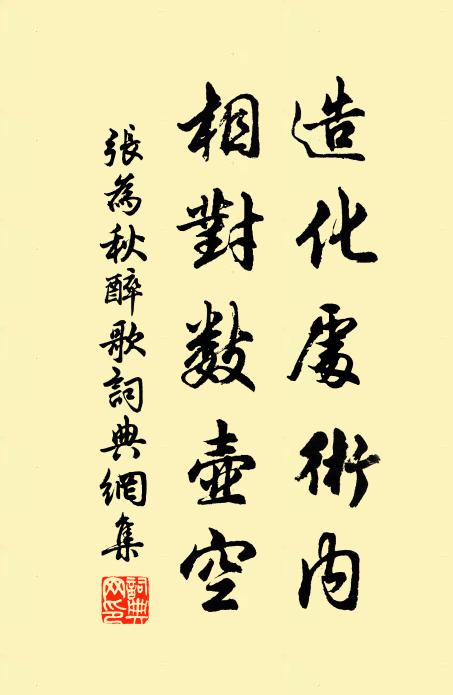 造化處術內
相對數壺空
張為秋醉歌詞典網集
詞典網印